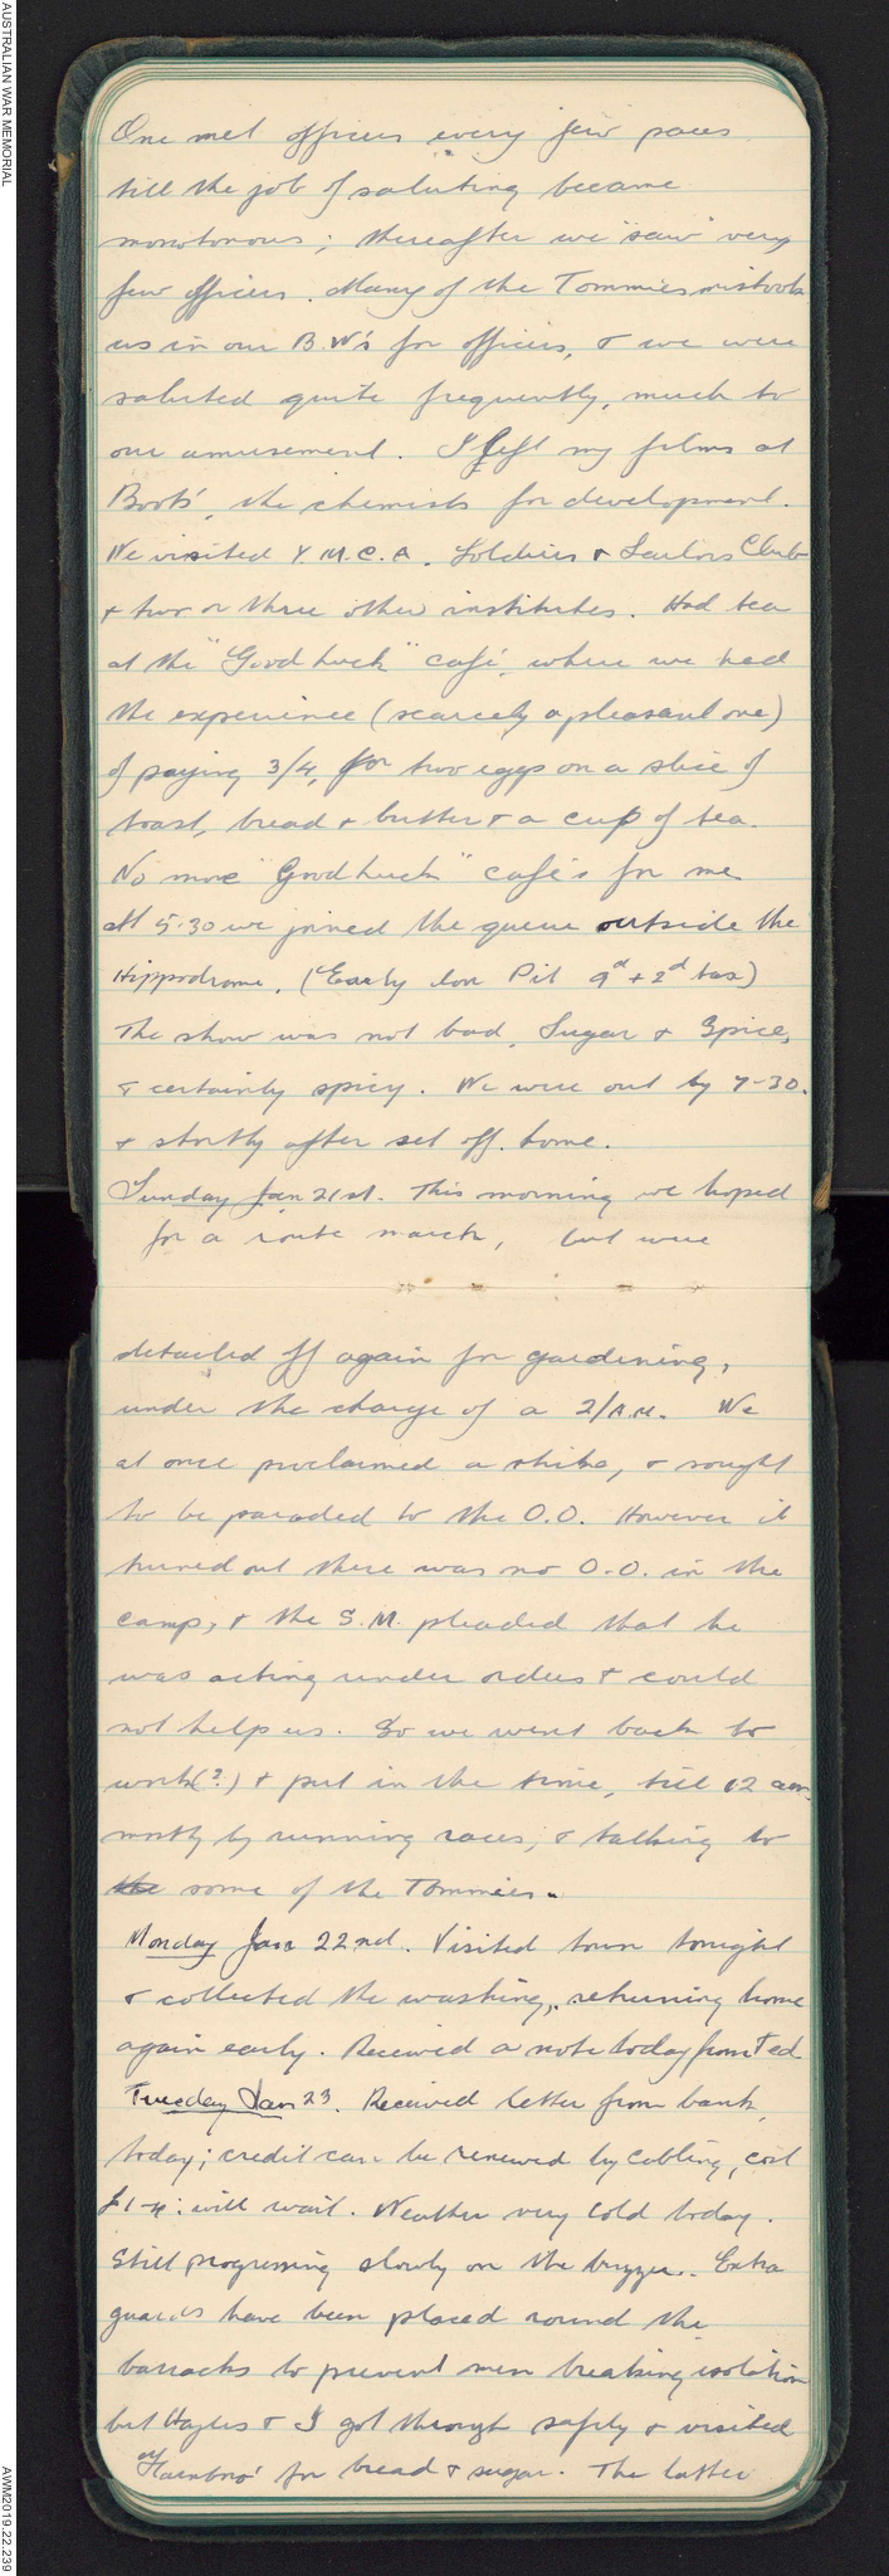 AUSTRALIAN WAR MEMORIAL
One met officers every few paces
till the job of saluting became
monotonous; thereafter we "saw" very
few officers. Many of the Tommies mistook
us in our B.W's for officers, & we were
saluted quite frequently, much to
our amusement. I left my films at
Boots', the chemists for development.
We visited Y.M.C.A. Soldiers & Sailors Club
& two or three other institutes. Had tea
at the "Good Luck" café, where we had
the experience (scarcely a pleasant one)
of paying 3/4, for two eggs on a slice of
toast, bread & butter & a cup of tea.
No more "Good Luck" cafés for me
At 5.30 we joined the queue outside the
Hippodrome. (Early door Pit 9d + 2d tax)
The show was not bad, Sugar & Spice,
& certainly spicy. We were out by 7-30.
& shortly after set off home.
Sunday Jan 21st. This morning we hoped
for a route march, but were
detailed off again for gardening,
under the charge of a 2/A.M. We
at once proclaimed a strike, & sought
to be paraded to the O.O. However it
turned out there was no O.O. in the
camp, & the S.M. pleaded that he
was acting under orders & could
not help us. So we went back to
work(?) & put in the time, till 12 am
mostly by running races, & talking to
the some of the Tommies.
Monday Jan 22nd. Visited town tonight
& collected the washing, returning home
again early. Received a note today from Ted
Tuesday Jan 23. Received letter from bank
today; credit can be renewed by cabling, cost
will wait. Weather very cold today.
Still progressing slowly on the buzzer. Extra
guards have been placed round the
barracks to prevent men breaking isolation
but & I got through safely & visited
Farnbro' for bread & sugar. The latter
AWM2019.22.239